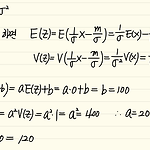 σ²
하면 E(Z)=E(1/σ X - m/σ) = 1/σ E(X) -
V(Z)=V(1/σ X - m/σ) = 1/σ² V(X) =
+b) = aE(Z)+b = a·0+b = b=100
= a²V(Z) = a²·1 = a² = 400 ∴ a=20
0 = 120